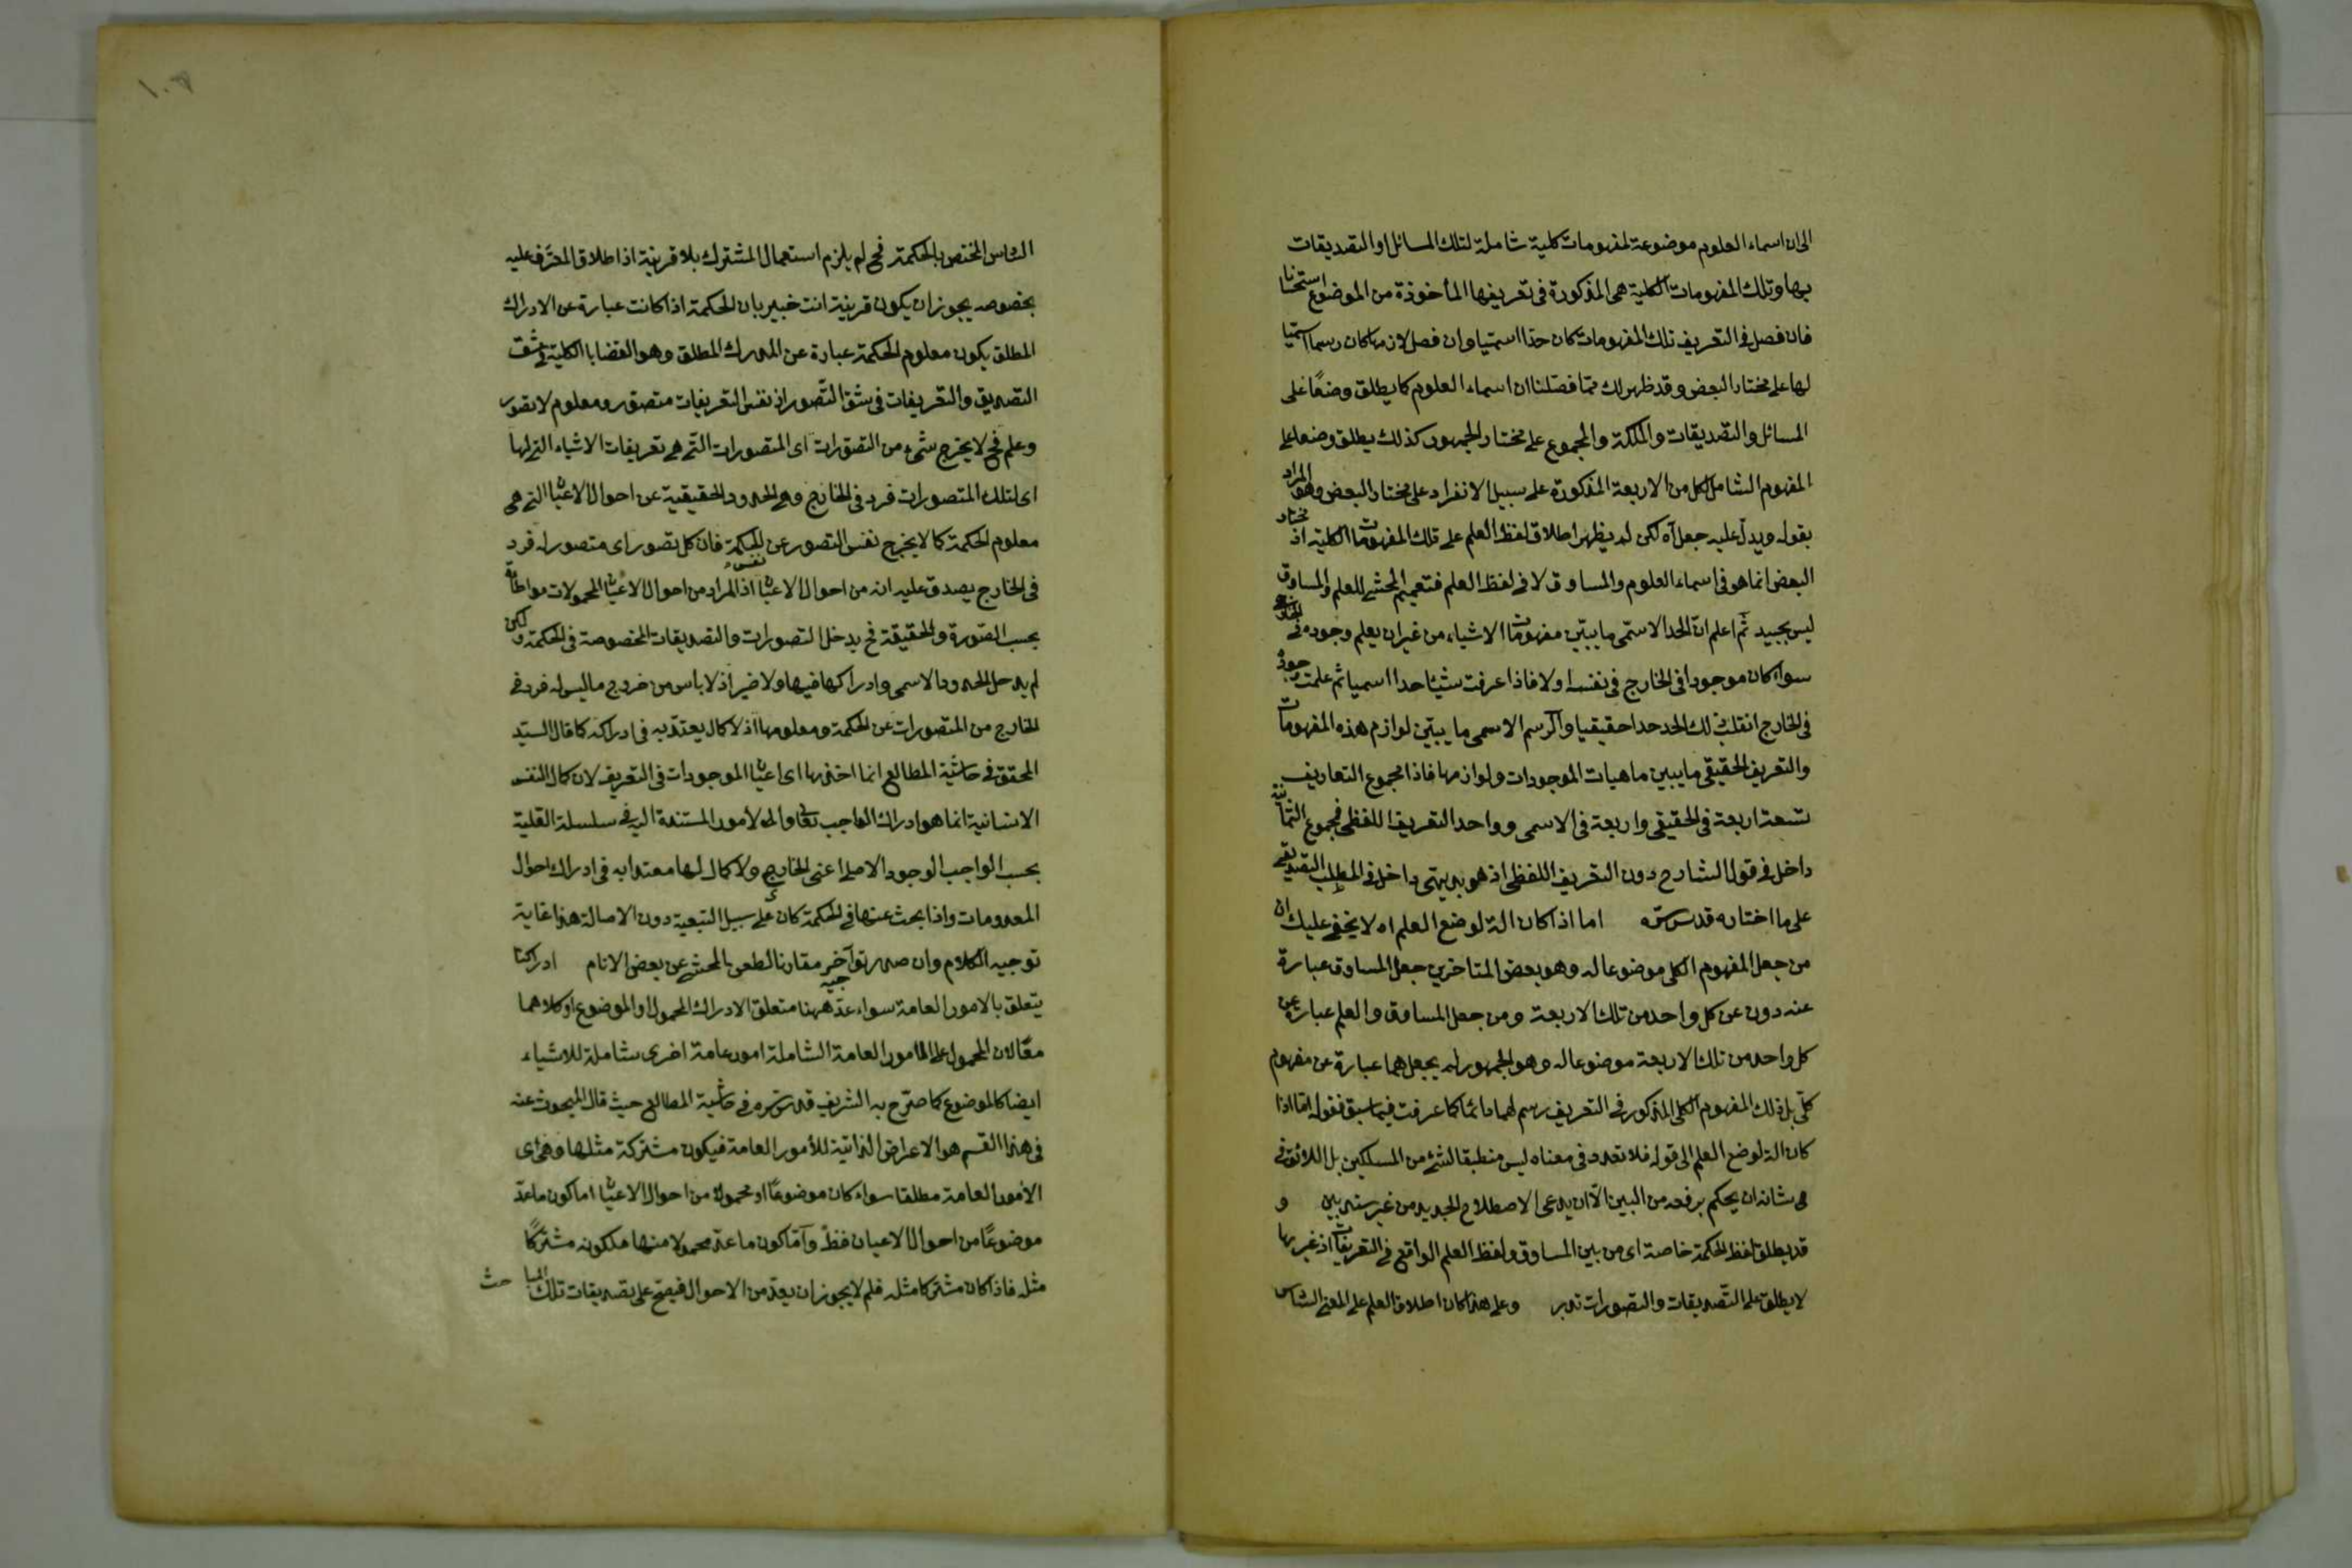 الى ان اسماء العلوم موضوعة لمفهومات كلية شاملة لتلك المسائل او التصديقات
بها وتلك المفهومات الكلية هى المذكورة فى تعريفها المأخوذة من الموضوع
فان فصل فى التعريف تلك المفهومات كان حدا اسميا وان فصل لازمها كان رسما اسميا
لها على مختار البعض وقد ظهر لك مما فصلنا ان اسماء العلوم كما يطلق وضعًا على
المسائل والتصديقات والملكة والمجموع على مختار الجمهور كذلك يطلق وضعا على
المفهوم الشامل لكل من الاربعة المذكورة على سبيل الانفراد على مختار البعض وهو المراد
بقوله ويدل عليه جعل اه لكن لم يظهر اطلاق لفظ العلم على تلك المفهومات الكلية اذ مختار
البعض انما هو فى اسماء العلوم والمساوق لا فى لفظ العلم فتعميم المحشى للعلم والمساوق
ليس بجيد ثم اعلم ان الحد الاسمى ما يبيّن مفهومات الاشياء من غير ان يعلم وجوده فى الخارج
سواء كان موجودا فى الخارج فى نفسه او لا فاذا عرفت شيئا حدا اسميا ثم علمت وجوده
فى الخارج انقلب ذلك الحد حدا حقيقيا والرسم الاسمى ما يبيّن لوازم هذه المفهومات
والتعريف الحقيقى ما يبين ماهيات الموجودات ولوازمها فاذا مجموع التعاريف
تسعة اربعة فى الحقيقى واربعة فى الاسمى وواحد التعريف اللفظى فمجموع الثمانية
داخل فى قول الشارح دون التعريف اللفظى اذ هو بديهى داخل فى المطلب التصديقى
على ما اختاره قدس سرّه اما اذا كان الة لوضع العلم اه لا يخفى عليك ان
من جعل المفهوم الكلى موضوعا له وهو بعض المتاخرين جعل المساوق عبارة
عنه دون عن كل واحد من تلك الاربعة ومن جعل المساوق والعلم عبارة عن
كل واحد من تلك الاربعة موضوعا له وهو الجمهور لم يجعلهما عبارة عن مفهوم
كلّى بل ذلك المفهوم الكلى المذكور فى التعريف رسم لهما دائما كما عرفت فيما سبق فقوله اما اذا
كان الة لوضع العلم الى قوله فلا تعدد فى معناه ليس منطبقا لشئ من المسلكين بل اللائق فى
فى شانه ان يحكم برفعه من البين الاّ ان يدعى الاصطلاح الجديد من غير سند بين و
قد يطلق لفظ الحكمة خاصة اى من بين المساوق ولفظ العلم الواقع فى التعريفات اذ غيرها
لا يطلق على التّصديقات والتصورات تدبر وعلى هذا كان اطلاق العلم على المعنى الشامل
الناس المختص بالحكمة فح لم يلزم استعمال المشترك بلا قرينة اذ اطلاق المعرّف عليه
بخصوصه يجوز ان يكون قرينة انت خبير بان الحكمة اذا كانت عبارة عن الادراك
المطلق يكون معلوم الحكمة عبارة عن المدرك المطلق وهو القضايا الكلية فى شق
التصديق والتعريفات فى شق التّصور اذ نفس التعريفات متصور ومعلوم لا تصور
وعلم فح لا يخرج شئ من التصورات اى المتصورات التى هى تعريفات الاشياء التى لها
اى لتلك المتصورات فرد فى الخارج وهى الحدود الحقيقية عن احوال الاعيان التى هى
معلوم الحكمة كما لا يخرج نفس التصور عن نفس الحكمة فان كل تصور اى متصور له فرد
فى الخارج يصدق عليه انه من احوال الاعيان اذ المراد من احوال الاعيان المحمولات مواطأة
بحسب الصّورة والحقيقة فح يدخل التصورات والتصديقات المخصوصة فى الحكمة ولكن
لم يدخل الحدود الاسمى وادراكها فيها ولا ضير اذ لا باس من خروج ما ليس له فرد فى
الخارج من المتصورات عن الحكمة ومعلومها اذ لا كمال يعتدّ به فى ادراكه كما قال السيّد
المحقق فى حاشية المطالع انما اختص بها اى اعيان الموجودات فى التعريف لان كمال النفس
الانسانية انما هو ادراك الواجب تعالى والامور المستندة اليه فى سلسلة العلية
بحسب الواجب الوجود الاصلى اعنى الخارجى ولا كمال لها معتدا به فى ادراك احوال
المعدومات واذا بحث عنها فى الحكمة كان على سبيل التبعية دون الاصالة هذا غاية
توجيه الكلام وان صدر توجيه آخر مقارنا لطعن بالمحشى عن بعض الانام ادراكنا
يتعلق بالامور العامة سواء عدّ ههنا متعلق الادراك المحمول او الموضوع او كلاهما
معًا لان المحمول على الامور العامة الشاملة امور عامة اخرى شاملة للاشياء
ايضا كالموضوع كما صرّح به الشريف قدس سره فى حاشية المطالع حيث قال المبحوث عنه
فى هذا القسم هو الاعراض الذاتية للأمور العامة فيكون مشتركة مثلها وهى اى
الأمور العامة مطلقا سواء كان موضوعًا او محمولا من احوال الاعيان اما كون ما عدّ
موضوعًا من احوال الاعيان فظ وأمّا كون ما عدّ محمولا منها فلكونه مشتركًا
مثله فاذا كان مشتركا مثله فلم لا يجوز ان يعدّ من الاحوال فيصحّ على تصديقات تلك المباحث